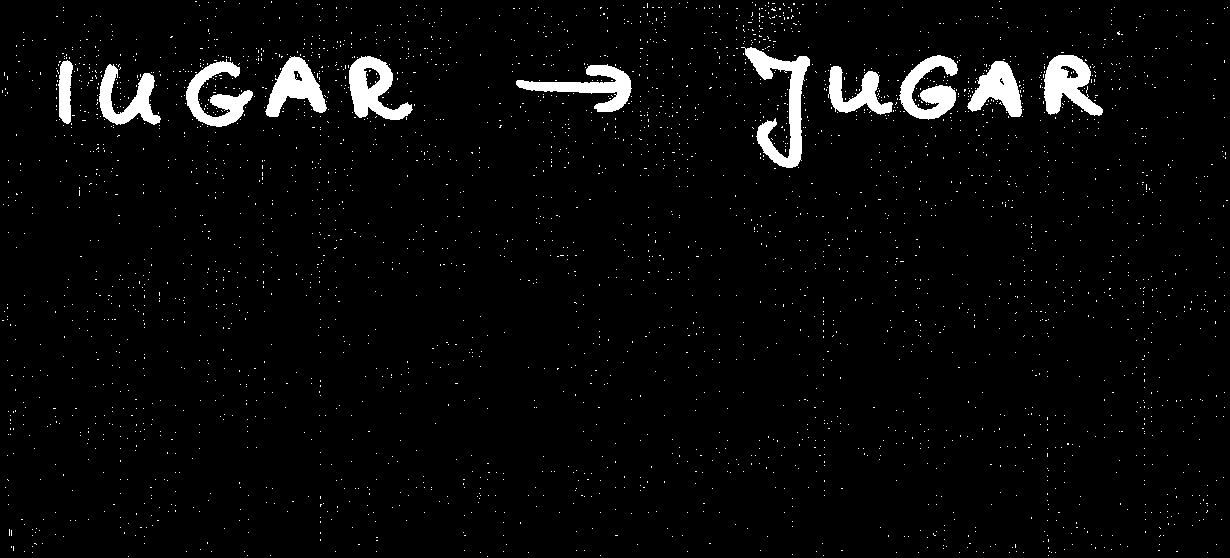 IUGAR → JUGAR